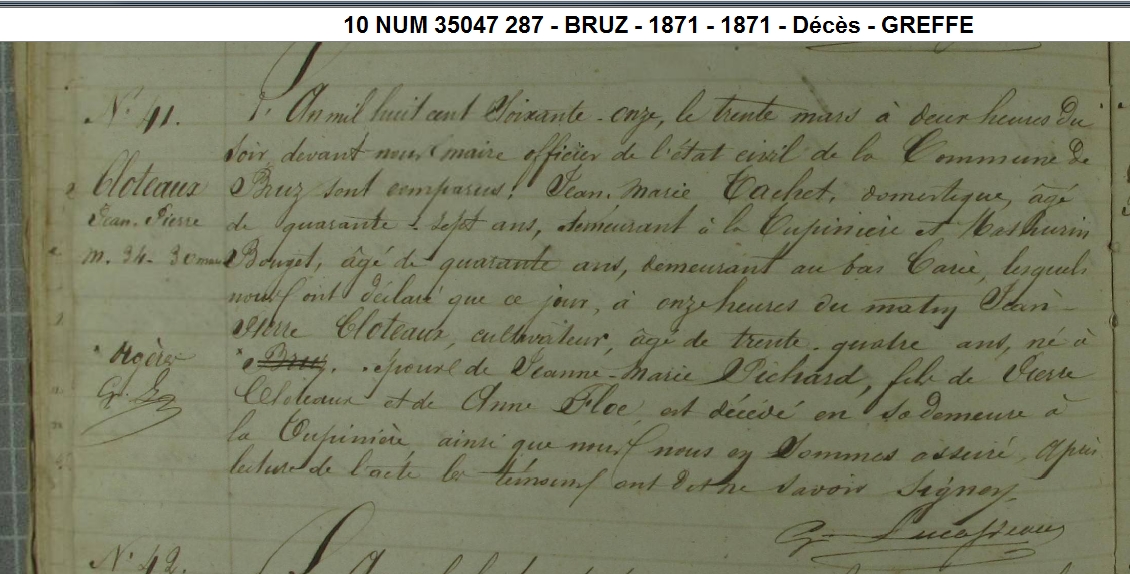 10 NUM 35047 287 - BRUZ - 1871 - 1871 - Décès - GREFFE
N° 41.
Cloteaux
Jean-Pierre
m. 34. 30 mars
× Noëre
L'An mil huit cent Soixante-onze, le trente mars à deux heures du
soir devant nous maire officier de l'état civil de la Commune de
Bruz sont comparus. Jean-Marie Tachet, domestique, âgé
de quarante-sept ans, demeurant à la Tupinière et Mathurin
Bouget, âgé de quarante ans, demeurant au bas Carié, lesquels
nous ont déclaré que ce jour, à onze heures du matin Jean-
Pierre Cloteaux, cultivateur, âgé de trente-quatre ans, né à
× Bruz. époux de Jeanne-Marie Pichard, fils de Pierre
Cloteaux et de Anne Floc est décédé en sa demeure à
la Tupinière ainsi que nous nous en sommes assuré, après
lecture de l'acte les témoins ont dit ne savoir signer
N° 42.